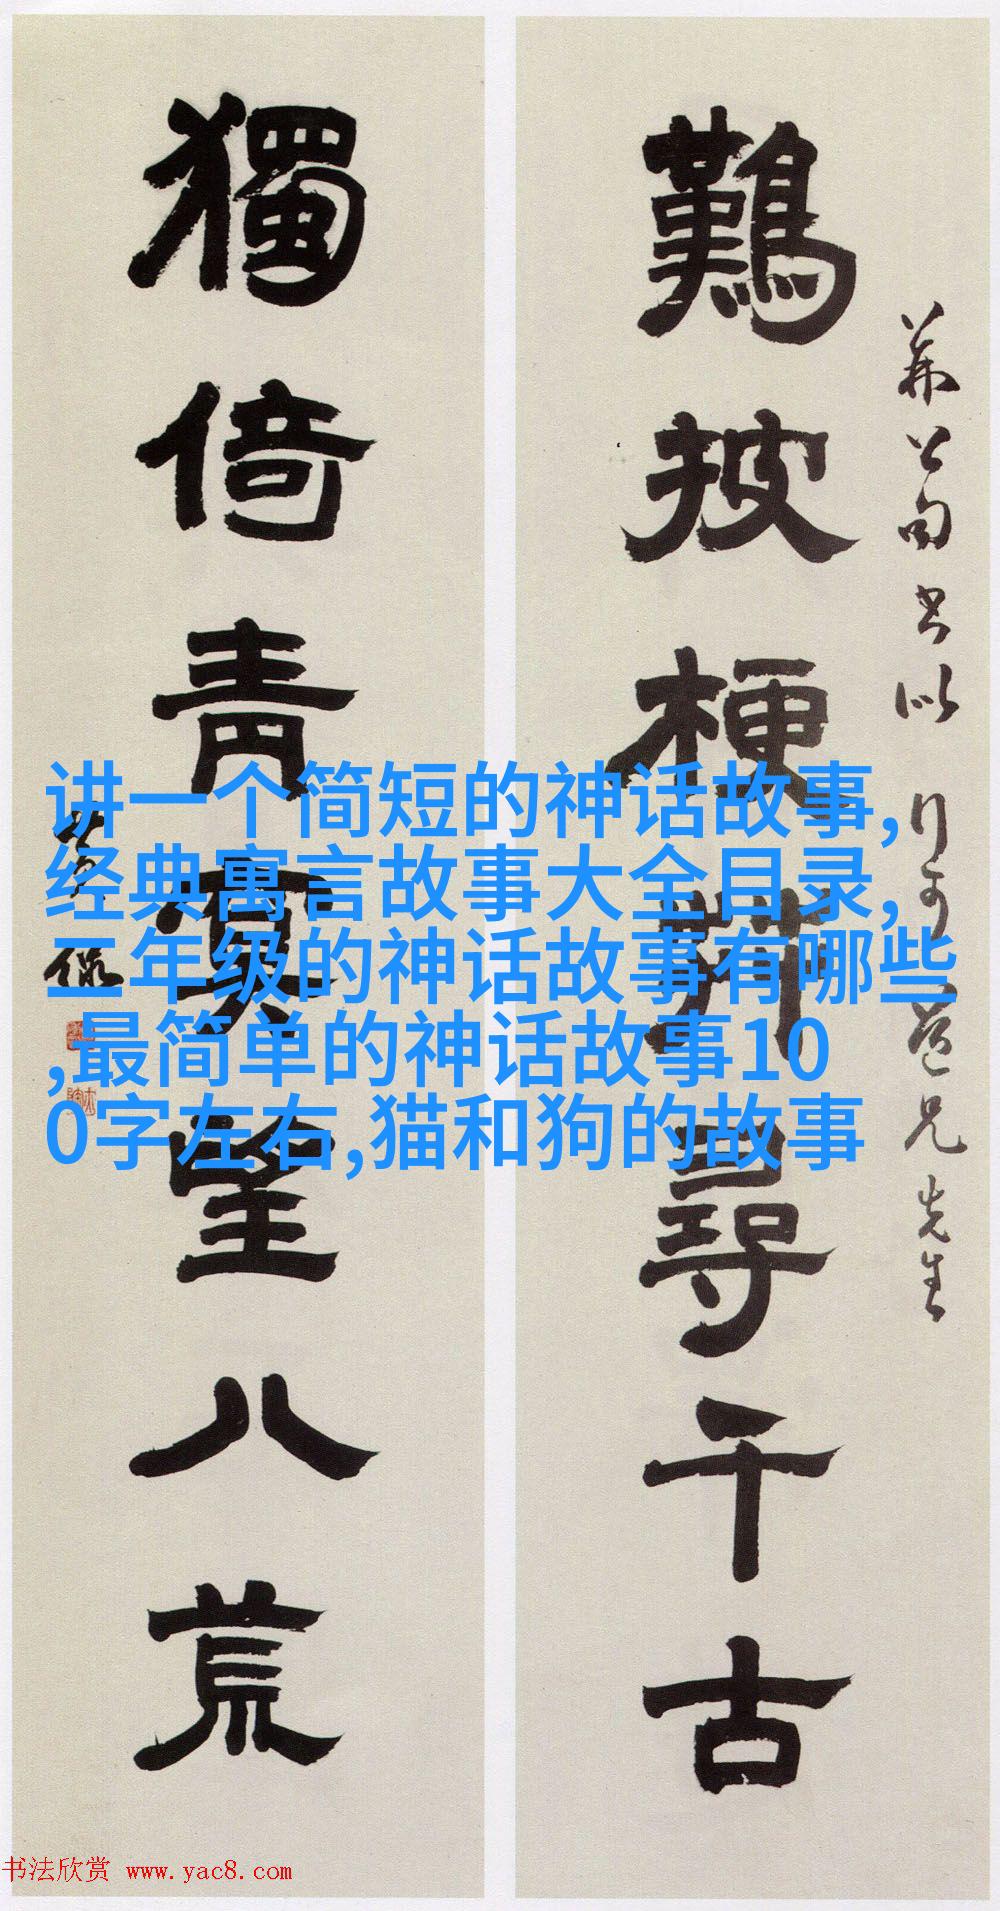 句書以 行可道兄先生
難披梗尋千古
獨倚青冥望八荒
黃侃
讲一个简短的神话故事,
经典寓言故事大全目录,
二年级的神话故事有哪些
,最简单的神话故事10
0字左右,猫和狗的故事
书法欣赏 www.yac8.com